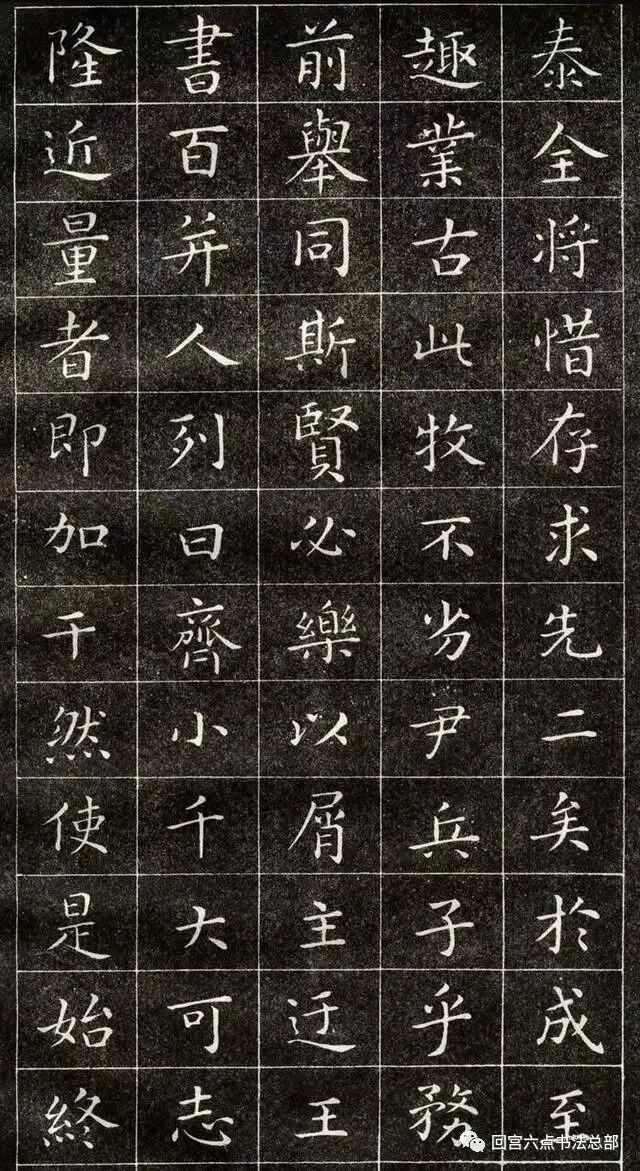 泰全将惜存求先二矣於成至
趣業古此牧不劣尹兵子乎務
前舉同斯賢必樂以屑主迂王
書百并人列曰齊小千大可志
隆近量者即加干然使是始終
回宫六点书法总部